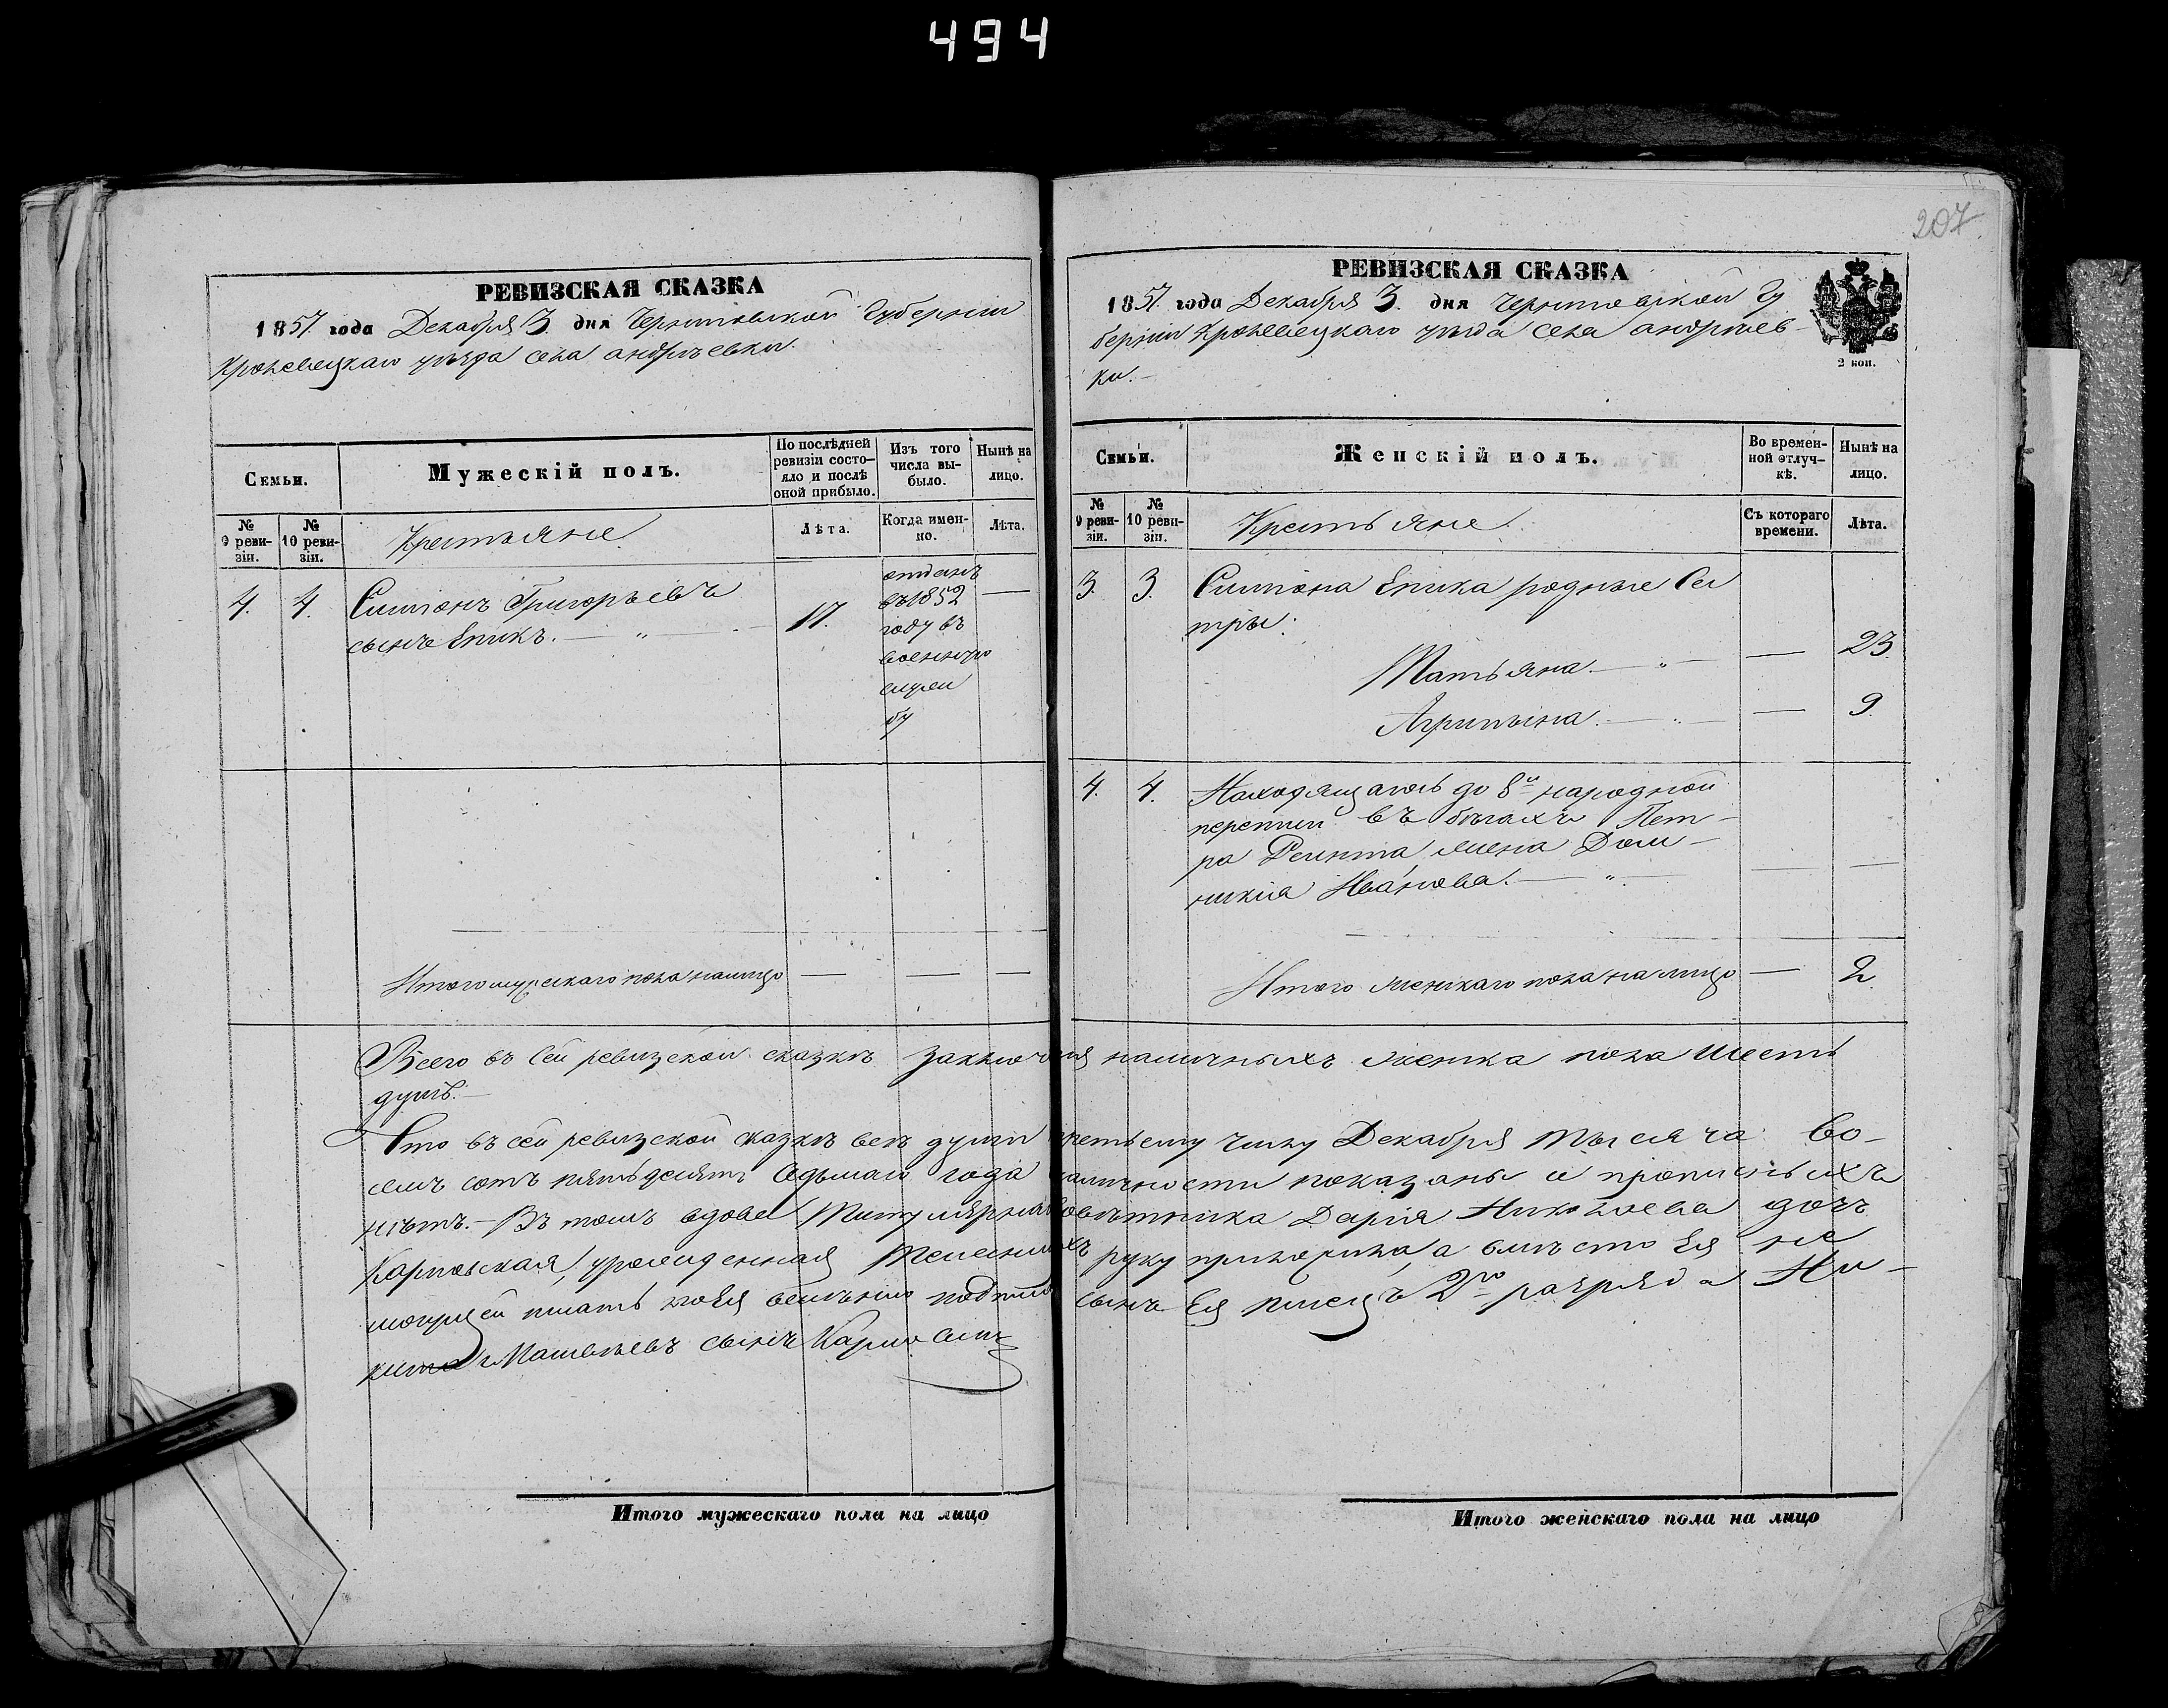 494
207
РЕВИЗСКАЯ СКАЗКА
1857 года Декабря 3 дня Черниговской Губернии
Кролевецкаго уѣзда села андрѣевки.
Семьи.
Мужескій полъ.
По послѣдней ревизіи состо-
яло и послѣ оной прибыло.
Изъ того числа вы-
было.
Нынѣ на лицо.
№ 9 реви-
зіи.
№ 10 реви-
зіи.
Крестьяне
Лѣта.
Когда имен-
но.
Лѣта.
4. 4. Симіонъ Григорьевъ
сынъ Епикъ. — „ — 17. —
отданъ
въ 1852
году въ
военную
служ
бу
Итого мужескаго пола налицо — — —
РЕВИЗСКАЯ СКАЗКА
1857 года Декабря 3 дня Черниговской Гу
берніи Кролевецкаго уѣзда села андрѣев-
ки.-
2 коп.
Семьи.
Женскій полъ.
Во времен-
ной отлуч-
кѣ.
Нынѣ на лицо.
№ 9 реви-
зіи.
№ 10 реви-
зіи.
Крестьяне
Съ котораго времени.
Лѣта.
3. 3. Симіона Епика родные Сес
тры:
Татьяна. — „ — — 23.
Агрипина. — „ — — 9.
4. 4. Находящагось до 8й народной
переписи въ бѣгахъ Пет-
ра жена Дом-
никія Иванова. — „ — — —
Итого женскаго пола налицо — 2
Всего въ сей ревизской сказкѣ заключ ся наличныхъ женска пола шесть
душъ.-
Что въ сей ревизской сказкѣ всѣ души третьему числу Декабря тысяча во-
емъ сотъ пятьдесятъ седьмаго года наличности показаны и прописныхъ
нѣтъ.- Въ томъ вдова Титулярна Совѣтника Дарія Николаева дочъ
Карповская, урожденная руку приложила, а вмѣсто Ея не
могущей писать по Ея велѣнію сынъ Ея писецъ 2го разряда Ни-
кита Матвѣевъ сынъ
Итого мужескаго пола на лицо
Итого женскаго пола на лицо